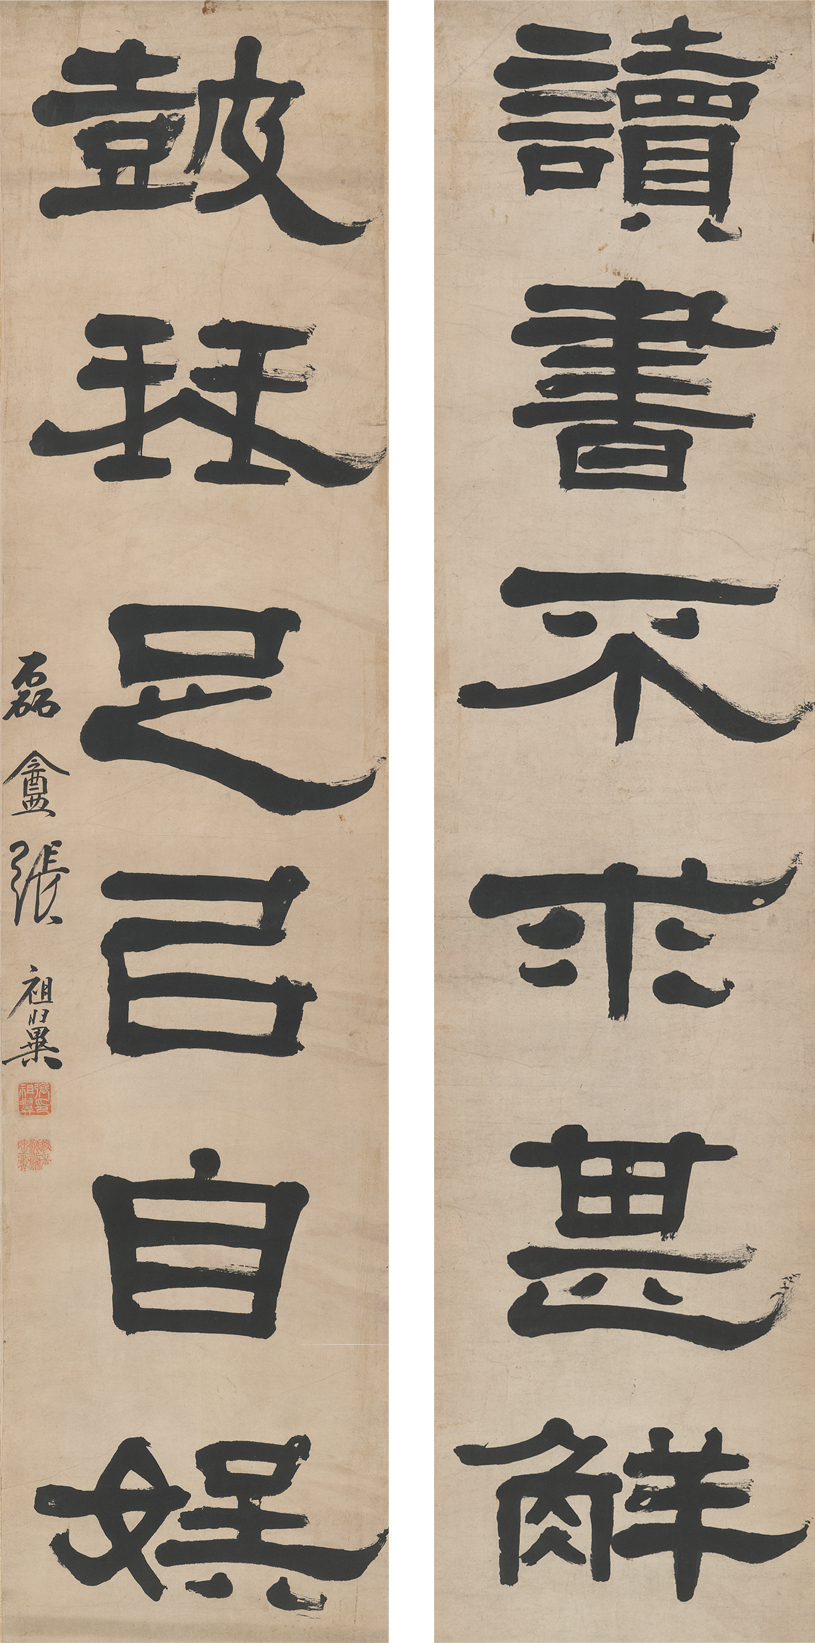 讀書不求甚觧
皷琴足㠯自娛
磊盦張祖翼